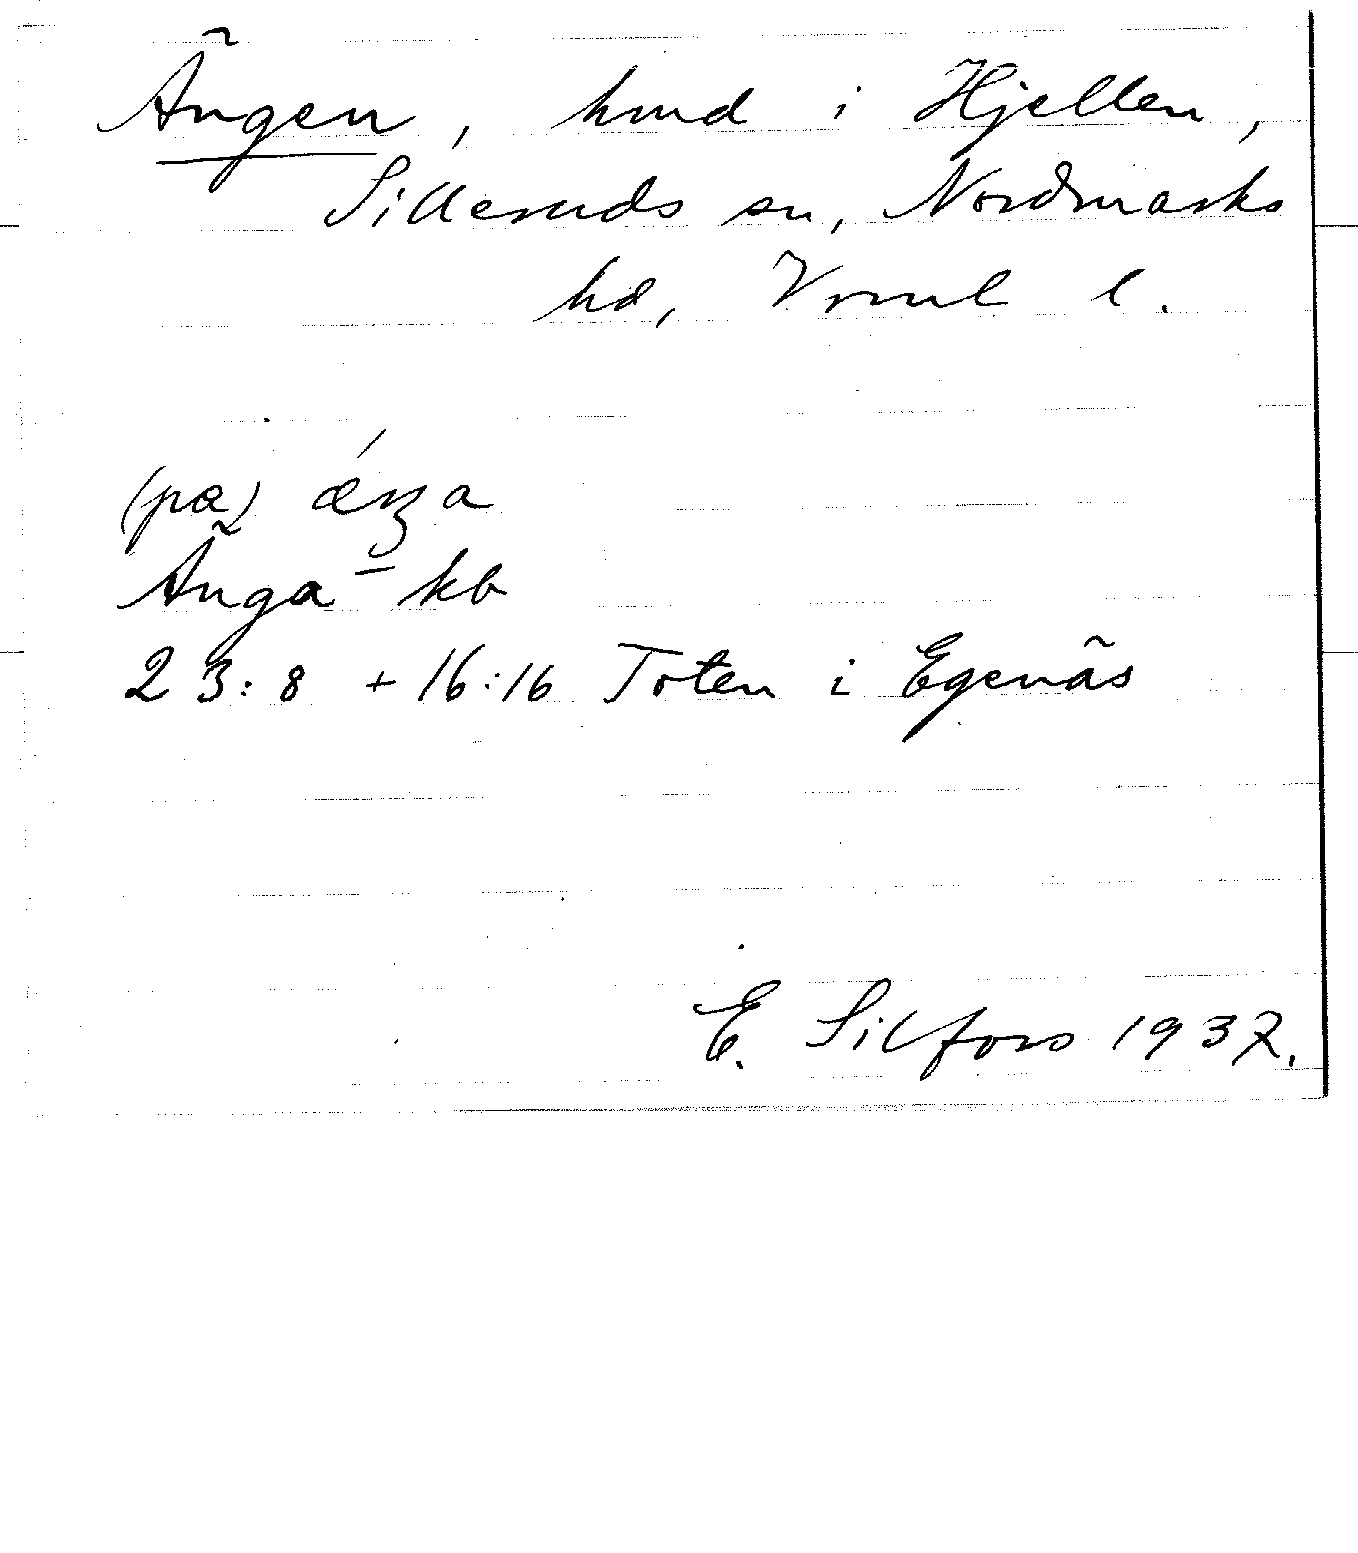 Ängen, hmd i Hjellen,
Silleruds sn, Nordmarks
hd, Vrml l.
(pæ) ǽŋa
Änga kb
23:8 + 16:16 Toten i Egenäs
E. Silfors 1937.